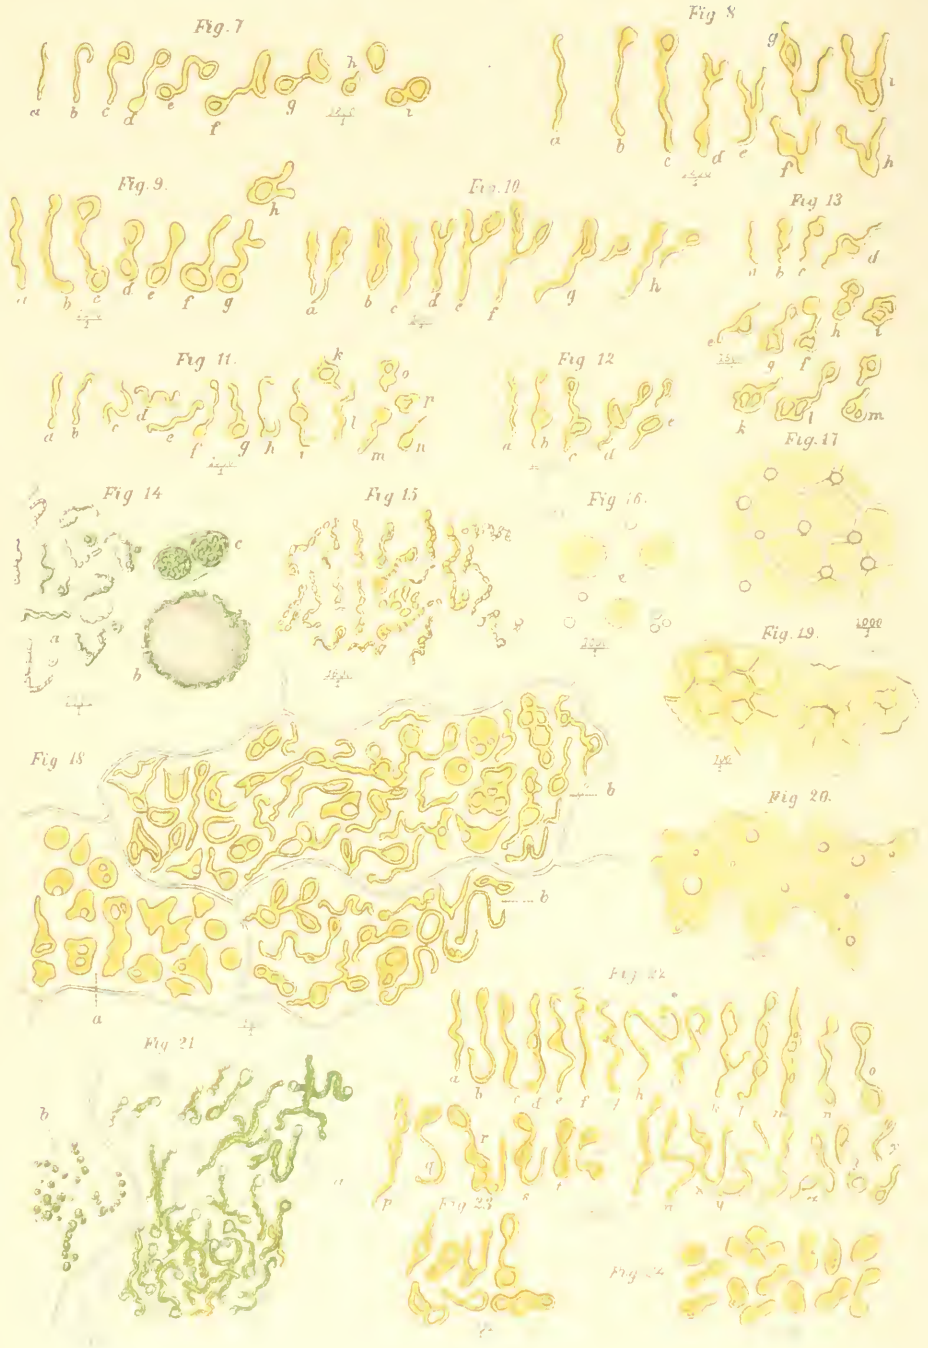 Fig. 7
a b c d e f g h i
Fig 8
a b c d e f g h i
Fig. 9.
a b c d e f g h
Fig. 10
a b c d e f g h
Fig 13
a b c d
e g f h i
k l m
Fig 11.
a b c d e f g h i k l m n o p
Fig 12
a b c d e
Fig. 17
1000
1
Fig 14
a b c
Fig 15
Fig 16.
Fig. 19.
Fig 18
a b b
Fig 20.
Fig 21
a b
Fig 22
a b c d e f g h k l m n o
p q r s t
Fig 23
Fig 24